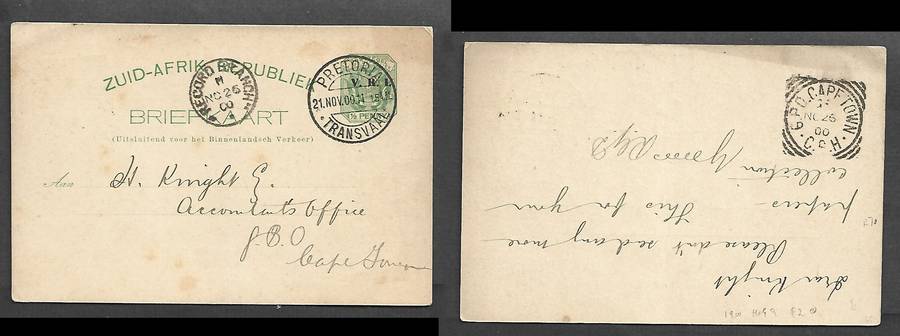 ZUID-AFRIK REPUBLIEK
BRIEFKAART
(Uitsluitend voor het Binnenlandsch Verkeer)
RECORD BRANCH
M
NO 26
00
PRETORIA
V. R.
21.NOV.00
TRANSVAAL
½ PENNY
Aan H. Knight E.
Accountants Office
G.P.O
Cape Town
G.P.O. CAPE TOWN
NO 26
00
C.G.H.
Dear Knight
Please don't send any more
papers - This for your
collection Yours
1900 H&G 9 £20